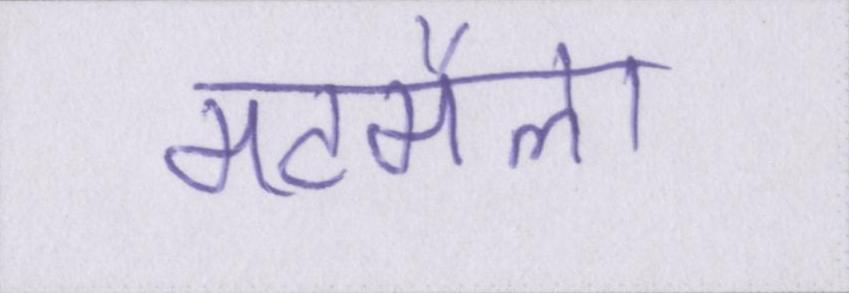 मटमैला